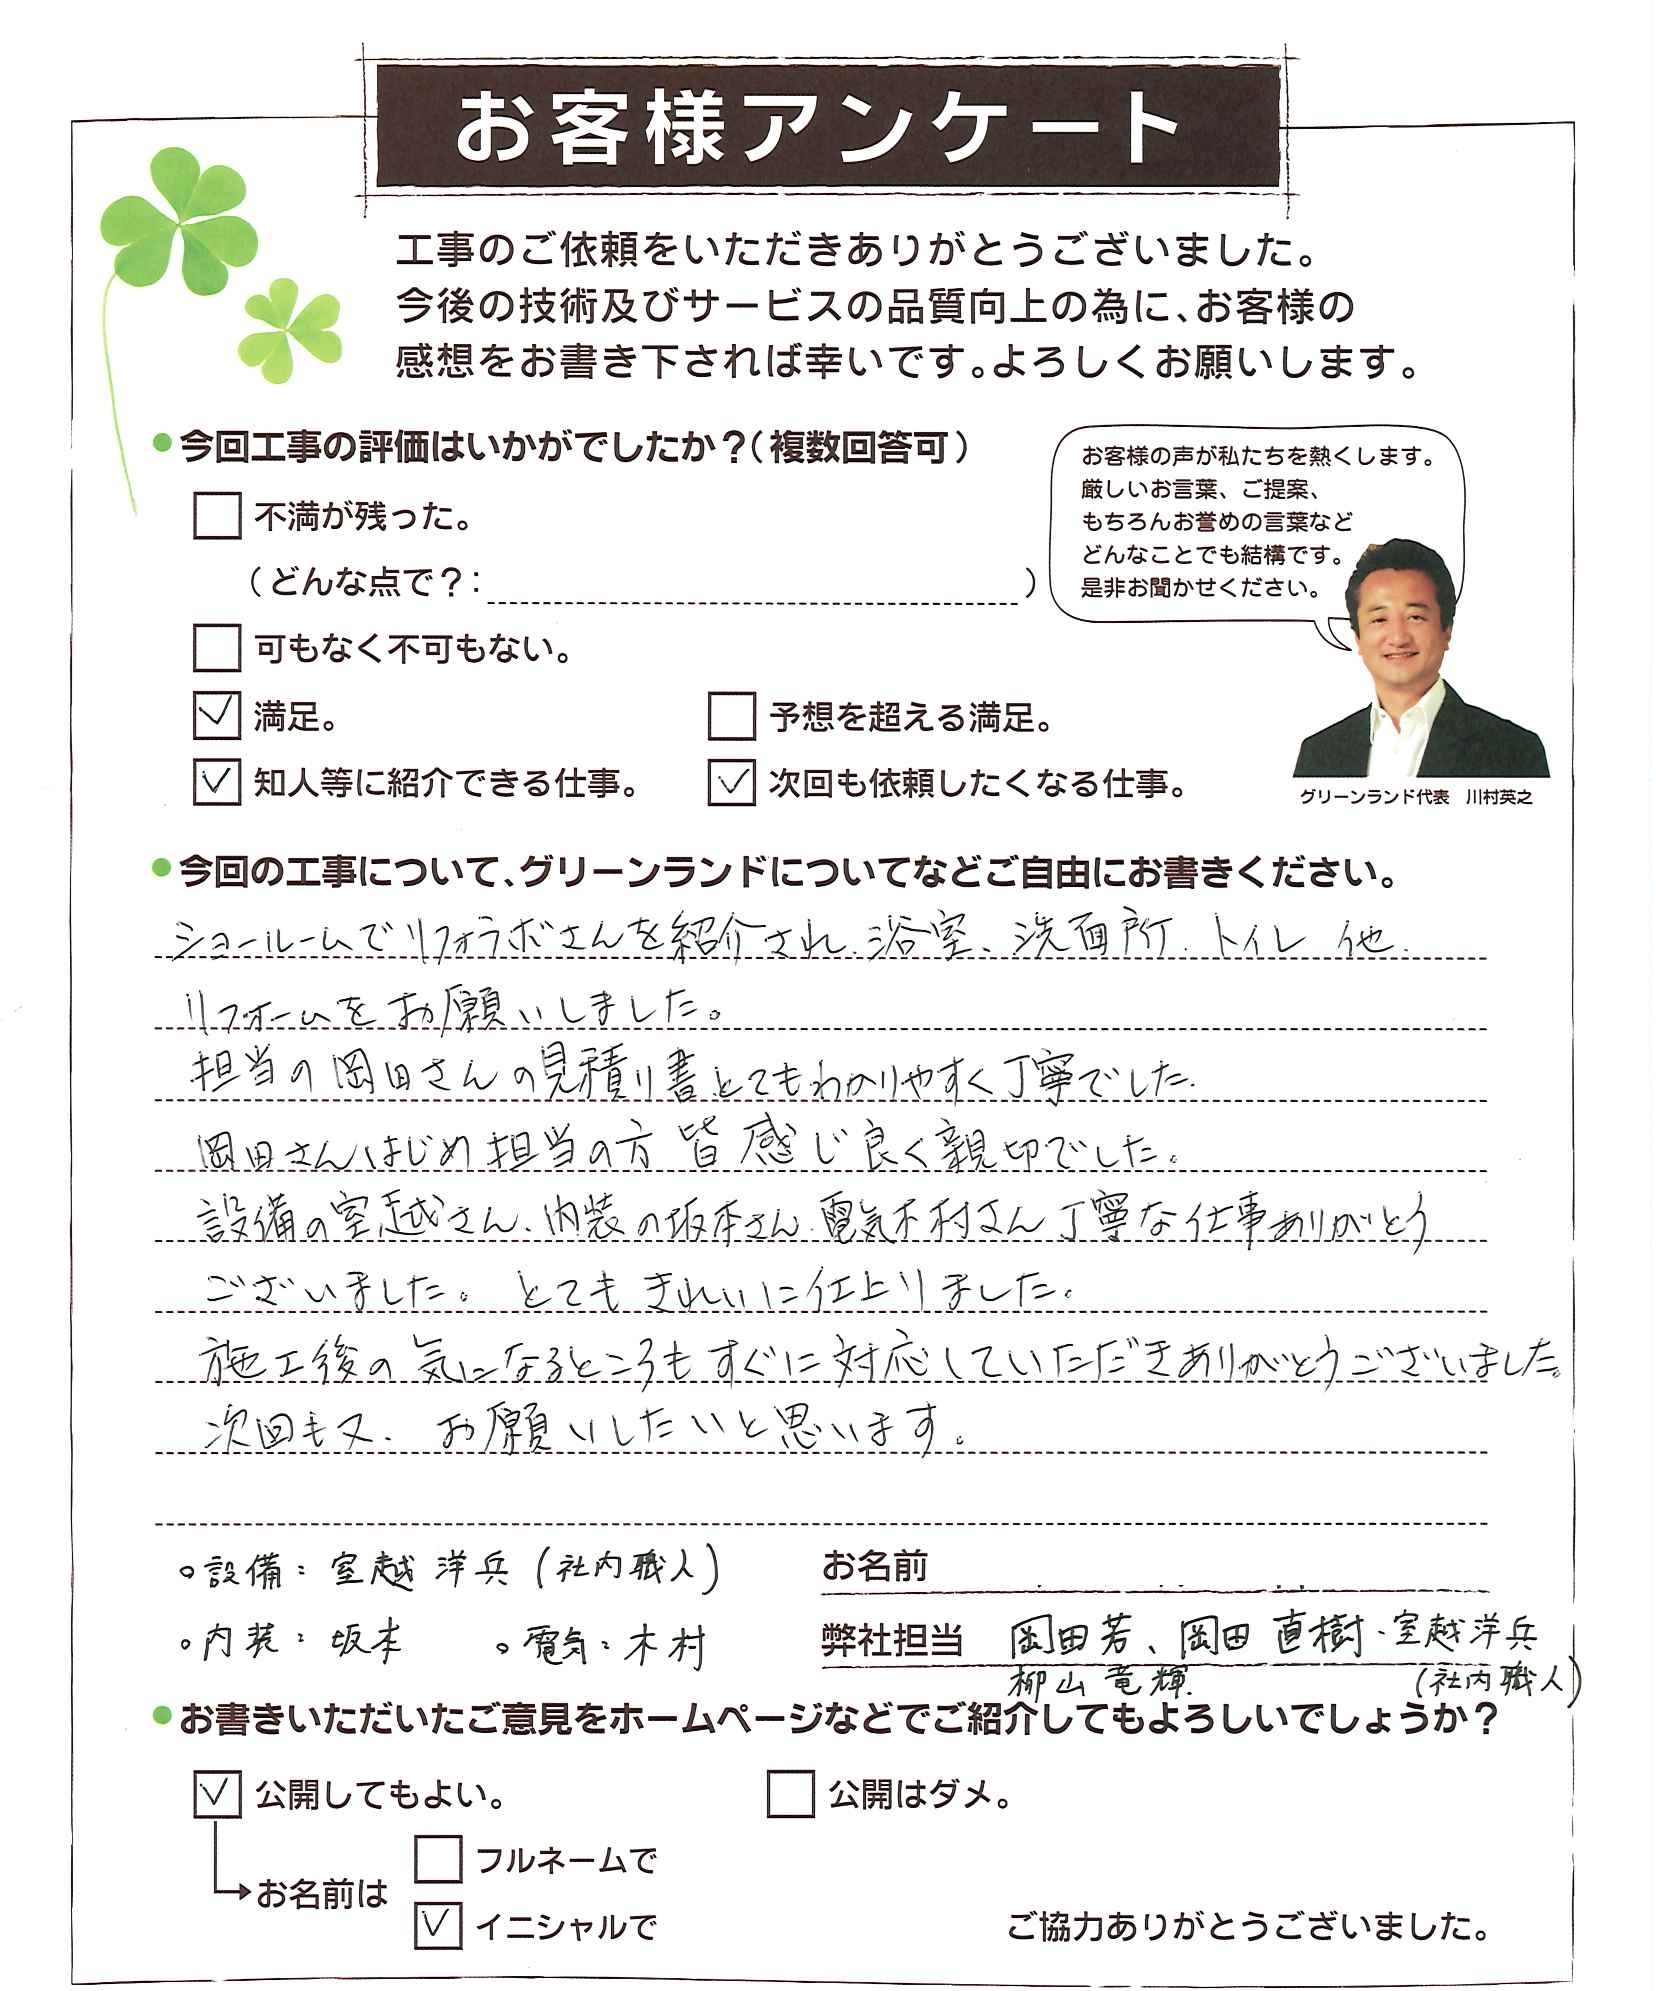 お客様アンケート
工事のご依頼をいただきありがとうございました。
今後の技術及びサービスの品質向上の為に、お客様の
感想をお書き下されれば幸いです。よろしくお願いします。
●今回工事の評価はいかがでしたか？（複数回答可）
不満が残った。
（どんな点で？：　　　　）
可もなく不可もない。
満足。　予想を超える満足。
知人等に紹介できる仕事。　次回も依頼したくなる仕事。
お客様の声が私たちを熱くします。
厳しいお言葉、ご提案、
もちろんお誉めの言葉など
どんなことでも結構です。
是非お聞かせください。
グリーンランド代表　川村英之
●今回の工事について、グリーンランドについてなどご自由にお書きください。
ショールームでリフォラボさんを紹介され、浴室、洗面所、トイレ 他、
リフォームをお願いしました。
担当の岡田さんの見積り書とてもわかりやすく丁寧でした。
岡田さんはじめ担当の方 皆 感じ良く親切でした。
設備の室越さん、内装の坂本さん、電気木村さん丁寧な仕事ありがとう
ございました。とてもきれいに仕上りました。
施工後の気になるところもすぐに対応していただきありがとうございました。
次回も又、お願いしたいと思います。
○設備：室越 洋兵（社内職人）
○内装：坂本　○電気：木村
お名前
弊社担当　岡田若、岡田 直樹・室越洋兵
柳山竜輝　（社内職人）
●お書きいただいたご意見をホームページなどでご紹介してもよろしいでしょうか？
公開してもよい。　公開はダメ。
お名前は
フルネームで
イニシャルで
ご協力ありがとうございました。